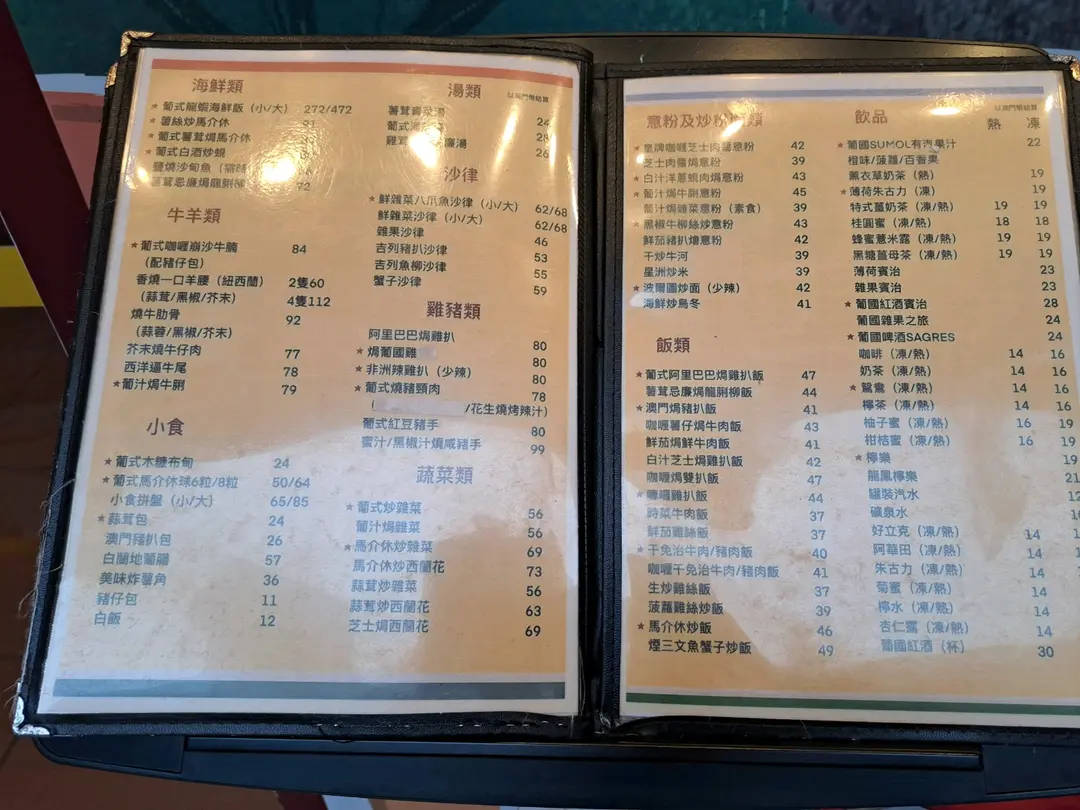 海鮮類
★葡式龍蝦海鮮飯（小/大） 272/472
★薯絲炒馬介休
★葡式薯茸焗馬介休
★葡式白酒炒蜆
鹽燒沙甸魚
薯茸忌廉焗龍脷柳 72
牛羊類
★葡式咖喱崩沙牛腩 84
（配豬仔包）
香燒一口羊腰（紐西蘭） 2隻60
（蒜茸/黑椒/芥末） 4隻112
燒牛肋骨 92
（蒜蓉/黑椒/芥末）
芥末燒牛仔肉 77
西洋逼牛尾 78
★葡汁焗牛脷 79
小食
★葡式木糠布甸 24
★葡式馬介休球6粒/8粒 50/64
小食拼盤（小/大） 65/85
★蒜茸包 24
澳門豬扒包 26
白蘭地葡腸 57
美味炸薯角 36
豬仔包 11
白飯 12
湯類
薯茸青菜湯 24
葡式海 28
雞茸 廉湯 26
沙律
★鮮雜菜八爪魚沙律（小/大） 62/68
鮮雜菜沙律（小/大） 62/68
雜果沙律 46
吉列豬扒沙律 53
吉列魚柳沙律 55
蟹子沙律 59
雞豬類
阿里巴巴焗雞扒 80
★焗葡國雞 80
★非洲辣雞扒（少辣） 80
★葡式燒豬頸肉 78
（ /花生燒烤辣汁）
葡式紅豆豬手 80
蜜汁/黑椒汁燒咸豬手 99
蔬菜類
★葡式炒雜菜 56
葡汁焗雜菜 56
★馬介休炒雜菜 69
馬介休炒西蘭花 73
蒜茸炒雜菜 56
蒜茸炒西蘭花 63
芝士焗西蘭花 69
意粉及炒粉 類
★皇牌咖喱芝士肉醬意粉 42
芝士肉醬焗意粉 39
★白汁洋蔥蜆肉焗意粉 43
★葡汁焗牛脷意粉 45
葡汁焗雜菜意粉（素食） 39
★黑椒牛柳絲炒意粉 43
鮮茄豬扒燴意粉 42
干炒牛河 39
星洲炒米 39
★波爾圖炒面（少辣） 42
海鮮炒烏冬 41
飯類
★葡式阿里巴巴焗雞扒飯 47
薯茸忌廉焗龍脷柳飯 44
★澳門焗豬扒飯 41
咖喱薯仔焗牛肉飯 43
鮮茄焗鮮牛肉飯 41
白汁芝士焗雞扒飯 42
咖喱焗雙扒飯 47
★咖喱雞扒飯 44
時菜牛肉飯 37
鮮茄雞絲飯 37
★干免治牛肉/豬肉飯 40
咖喱干免治牛肉/豬肉飯 41
生炒雞絲飯 37
菠蘿雞絲炒飯 39
★馬介休炒飯 46
煙三文魚蟹子炒飯 49
飲品
熱 凍
★葡國SUMOL有汽果汁 22
橙味/菠蘿/百香果
薰衣草奶茶（熱） 19
★薄荷朱古力（凍） 19
特式薑奶茶（凍/熱） 19 19
桂圓蜜（凍/熱） 18 18
蜂蜜薏米露（凍/熱） 19 19
黑糖薑母茶（凍/熱） 19 19
薄荷賓治 23
雜果賓治 23
★葡國紅酒賓治 28
葡國雜果之旅 24
★葡國啤酒SAGRES 24
咖啡（凍/熱） 14 16
奶茶（凍/熱） 14 16
★鴛鴦（凍/熱） 14 16
檸茶（凍/熱） 14 16
柚子蜜（凍/熱） 16 19
柑桔蜜（凍/熱） 16 19
★檸樂 19
龍鳳檸樂 21
罐裝汽水
礦泉水
好立克（凍/熱） 14
阿華田（凍/熱） 14
朱古力（凍/熱） 14
菊蜜（凍/熱）
檸水（凍/熱）
杏仁露（凍/熱） 14
葡國紅酒（杯） 30